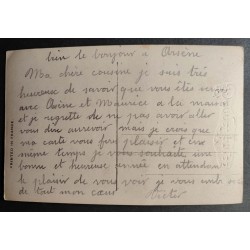 bien le bonjour à Arsène
Ma chère cousine je suis très
heureuse de savoir que vous êtes
avec et Maurice à la maison
et je regrette de ne pas avoir aller
vous dire aurevoir mais je crois que
ma carte vous fera plaisir et en
même temps je vous souhaite une
bonne et heureuse année en attendant
le plaisir de vous voir je vous
de tout mon cœur
PRINTED IN FRANCE